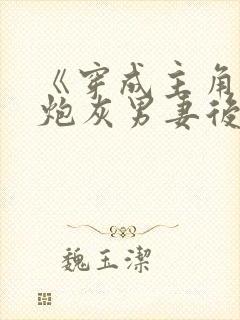 《穿成主角
炮灰男妻後
魏玉潔